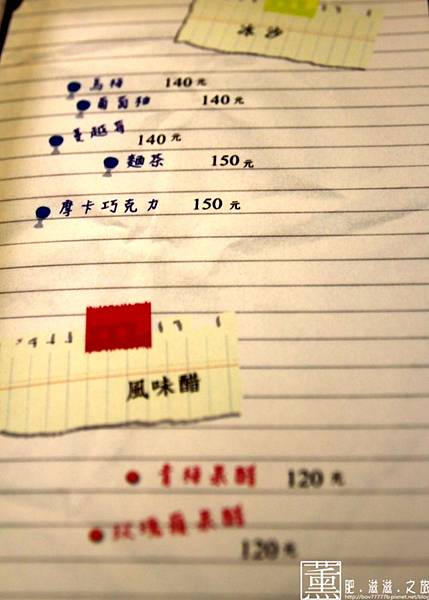 冰沙
烏梅 140元
葡萄柚 140元
蔓越莓 140元
麵茶 150元
摩卡巧克力 150元
風味醋
青梅果醋 120元
玫瑰蘋果醋
120元
薰 肥.滋滋.之旅